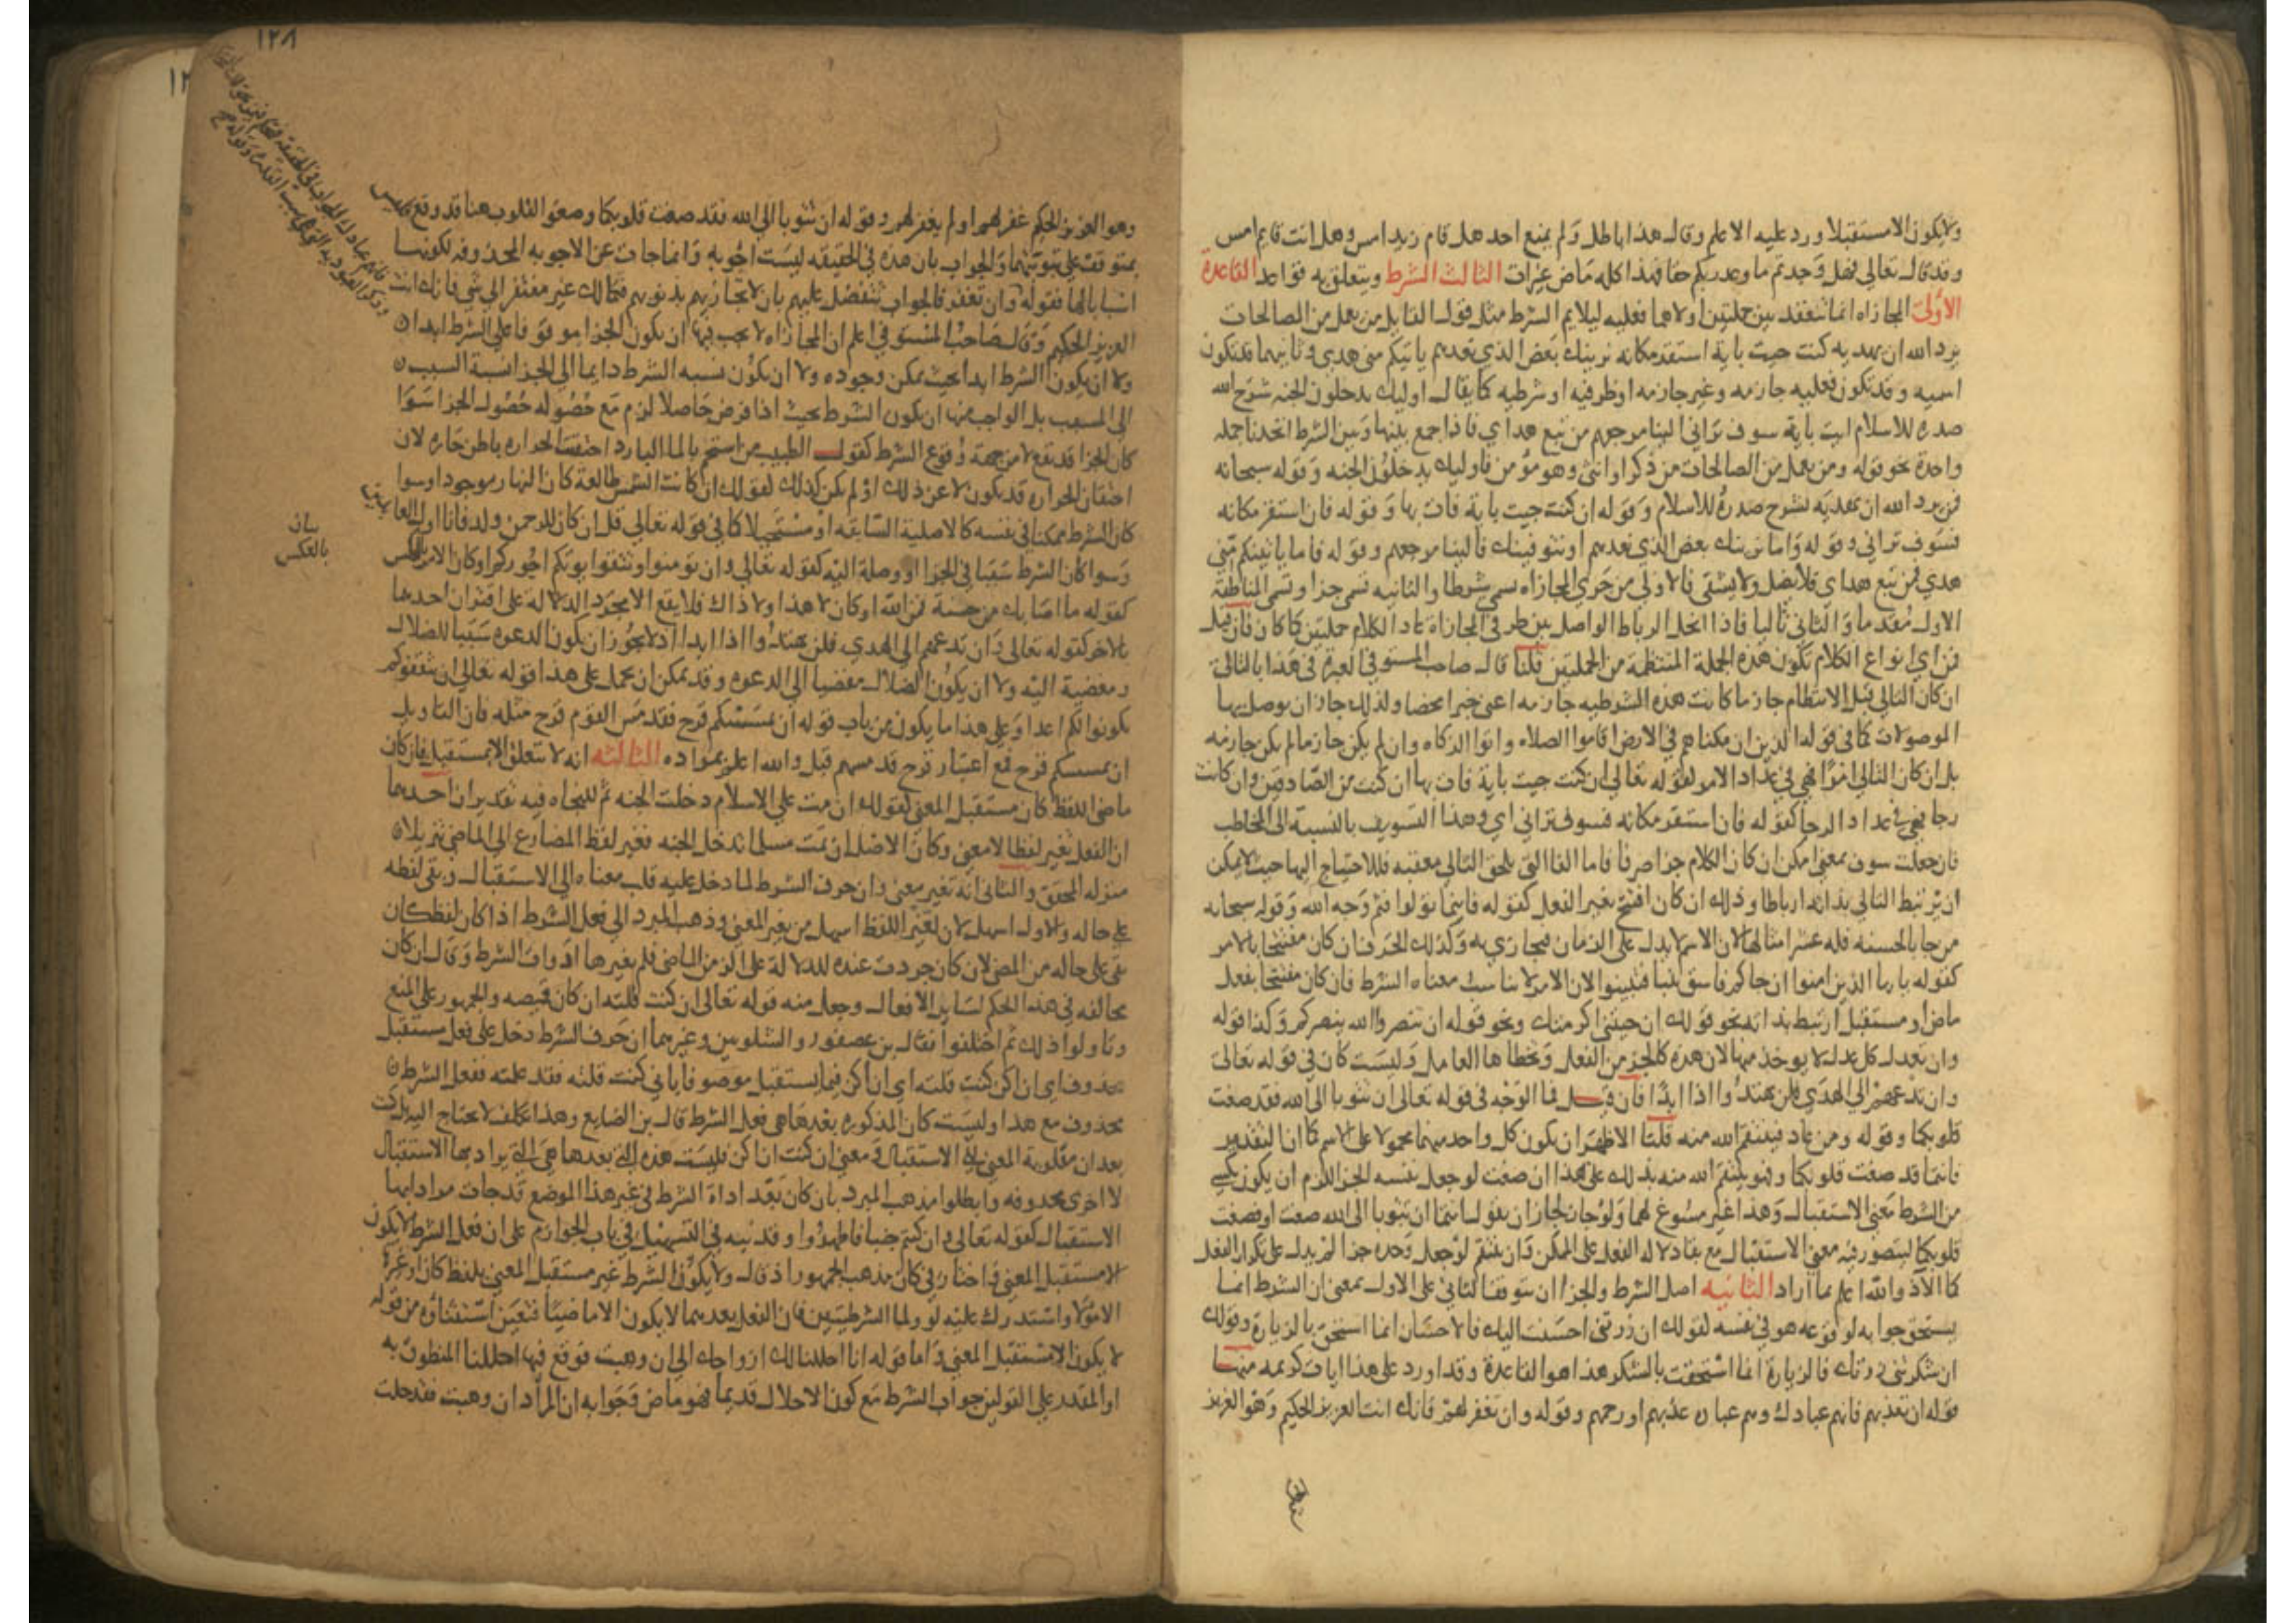 ولا يكون الا مستقبلا ورد عليه الاعلم وقال هذا باطل ولم يمنع احد هل قام زيد امس وهل انت قايم امس
وقد قال تعالى فهل وجدتم ما وعد ربكم حقا فهذا كله ماض غير ات الثالث الشرط ويتعلق به قواعد القاعدة
الاولى المجازاه انما تنعقد بين جملتين اولاهما فعليه ليلايم الشرط مثل قولك القايل من يعمل من الصالحات
يرد الله ان يهديه كنت جيت باية استقر مكانه نرينك بعض الذي نعدهم ياتيكم مني هدى وثانيهما قد تكون
اسميه وقد تكون فعليه جازمه وغير جازمه او ظرفيه او شرطيه كما يقال اوليك يدخلون الجنه شرح الله
صدره للاسلام ايت باية سوف تراني الينا مرجعهم من تبع هداي فاذا جمع بينها وبين الشرط اتحدتا جملة
واحدة نحو قوله ومن يعمل من الصالحات من ذكر او انثى وهو مؤمن فاوليك يدخلون الجنه وقوله سبحانه
فمن يرد الله ان يهديه يشرح صدره للاسلام وقوله ان كنت جيت باية فات بها وقوله فان استقر مكانه
فسوف تراني وقوله واما نرينك بعض الذي نعدهم او نتوفينك فالينا مرجعهم وقوله فاما ياتينكم مني
هدى فمن تبع هداي فلا يضل ولا يشقى فالاولى من جزي المجازاه تسمى شرطا والثانيه تسمى جزا وتسمى المناطقة
الاول مقدما والثاني تاليا فاذا انحل الرباط الواصل بين طرفي المجازاة عاد الكلام جملتين كما كان فان قيل
فمن اي انواع الكلام تكون هذه الجملة المنتظمة من الجملتين قلنا قال صاحب المستوفى العبرة في هذا بالتالي
ان كان التالي قبل الانتظام جازما كانت هذه الشرطيه جازمه اعنى خبرا محضا ولذلك جاز ان يوصل بها
الموصولات كما في قوله الذين ان مكناهم في الارض اقاموا الصلاه واتوا الزكاه وان لم يكن جازما لم يكن جازمه
بل ان كان التالي امرا فهي في عداد الامر لقوله تعالى ان كنت جيت باية فات بها ان كنت من الصادقين وان كانت
رجا فهي في عداد الرجا كقوله فان استقر مكانه فسوف تراني اي وهذا التسويف بالنسبة الى المخاطب
فان جعلت سوف بمعنى امكن ان كان الكلام جزا صرفا فاما الفا التي تلحق التالي معقبه فللاحتياج اليها حيث لا يمكن
ان يرتبط التالي بذاته ارتباطا وذلك ان كان افتتح بغير الفعل كقوله فاينما تولوا فثم وجه الله وقوله سبحانه
من جا بالحسنه فله عشر امثالها لان الاسم لا يدل على الزمان فيجازى به وكذلك الحرف فان كان مفتتحا بالامر
كقوله يا ايها الذين امنوا ان جاكم فاسق بنبا فتبينوا لان الامر لا يناسب معناه الشرط فان كان مفتتحا بفعل
ماض او مستقبل ارتبط بذاته نحو قولك ان جيتني اكرمتك ونحو قوله ان تنصروا الله ينصركم وكذا قوله
وان تعدل كل عدل لا يوخذ منها لان هذه كالجز من الفعل وتخطاها العامل وليست كان في قوله تعالى
وان تدعهم الى الهدى فلن يهتدوا اذا ابدا فان قيل فما الوجه في قوله تعالى ان تتوبا الى الله فقد صغت
قلوبكما وقوله ومن عاد فينتقم الله منه قلنا الاظهر ان يكون كل واحد منهما محمولا على الاسم كما ان التقدير
فانتما قد صغت قلوبكما وفهو ينتقم الله منه يدلك على هذا ان صغت لو جعل نفسه الجزا للزم ان يكون يكسب
من الشرط معنى الاستقبال وهذا غير مسوغ لهما ولو جاز لجاز ان يقول انتما ان تتوبا الى الله صغت او فصغت
قلوبكما ليتصور فيه معنى الاستقبال مع بقا دلالة الفعل على الممكن وان ينتقم لو جعل وحده جزا لم يدل على تكرار الفعل
كما الان والله اعلم بما اراد الثانيه اصل الشرط والجزا ان يتوقف الثاني على الاول بمعنى ان الشرط انما
يستحق جوابه لوقوعه هو في نفسه لقولك ان زرتني احسنت اليك فالاحسان انما استحق بالزيارة وقولك
ان شكرتني زرتك فالزيارة انما استحقت بالشكر هذا هو القاعدة وقد اورد على هذا ايات كريمه منها
قوله ان تعذبهم فانهم عبادك وهم عباده عذبهم او رحمهم وقوله وان تغفر لهم فانك انت العزيز الحكيم وهو العزيز
١٢٨
وهو العزيز الحكيم غفر لهم او لم يغفر لهم وقوله ان تتوبا الى الله فقد صغت قلوبكما وصغو القلوب هنا قد وقع فليس
بمتوقف على توبتهما والجواب بان هذه في الحقيقه ليست اجوبه وانما جات عن الاجوبه المحذوفه لكونها
اسبابا لها فقوله وان تغفر فالجواب تتفضل عليهم بان لا تجازيهم بذنوبهم فمالك غير مفتقر الى شي فانك انت
العزيز الحكيم وقال صاحب المستوفى اعلم ان المجازاه لا يجب فيها ان يكون الجزا موقوفا على الشرط ابدا
ولا ان يكون الشرط ابدا بحيث يمكن وجوده ولا ان يكون نسبه الشرط دايما الى الجزا نسبة السبب
الى المسبب بل الواجب فيها ان يكون الشرط بحيث اذا فرض حاصلا لزم مع حصوله حصول الجزا سوا
كان الجزا قد يقع لا من جهة وقوع الشرط كقول الطبيب من استحم بالما البارد احتقنت الحراره باطن جسده لان
احتقان الحراره قد يكون لا عن ذلك او لم يكن كذلك لقولك ان كانت الشمس طالعة كان النهار موجودا وسوا
كان الشرط ممكنا في نفسه كالامثلة السابقه او مستحيلا كما في قوله تعالى قل ان كان للرحمن ولد فانا اول العابدين
وسوا كان الشرط سببا في الجزا او وصلة اليه كقوله تعالى وان تومنوا وتتقوا يوتكم اجوركم او كان الامر بالعكس
كقوله ما اصابك من حسنة فمن الله او كان لا هذا ولا ذاك فلا يقع الا مجرد الدلاله على اقتران احدهما
بالاخر كقوله تعالى وان تدعهم الى الهدى فلن يهتدوا اذا ابدا اذ لا يجوز ان يكون الدعوه سببا للضلال
ومفضية اليه ولا ان يكون الضلال مفضيا الى الدعوه وقد يمكن ان يحمل على هذا قوله تعالى ان يثقفوكم
يكونوا لكم اعدا وعلى هذا ما يكون من باب قوله ان يمسسكم قرح فقد مس القوم قرح مثله فان التاويل
ان يمسسكم قرح فمع اعتبار قرح قد مسهم قبل والله اعلم بمراده الثالثه انه لا تتعلق الا بمستقبل فان كان
ماضي اللفظ كان مستقبل المعنى لقولك ان مت على الاسلام دخلت الجنه ثم للنحاه فيه تقديران احدهما
ان الفعل يغير لفظا لا معنى وكان الاصل ان تمت مسلما تدخل الجنه فغير لفظ المضارع الى الماضي تنزيلا
منزله المحقق والثاني انه تغير معنى وان حرف الشرط لما دخل عليه قلب معناه الى الاستقبال وبقى لفظه
على حاله والاول اسهل لان تغير اللفظ اسهل من تغير المعنى وذهب المبرد الى فعل الشرط اذا كان لفظ كان
بقى على حاله من المضى لان كان جردت عنده للدلالة على الزمن الماضي فلم يغيرها ادوات الشرط وقال ان كان
مخالفه في هذا الحكم لساير الافعال وجعل منه قوله تعالى ان كنت قلته ان كان قميصه والجمهور على المنع
وتاولوا ذلك ثم اختلفوا فقال بن عصفور والشلوبين وغيرهما ان حرف الشرط دخل على فعل مستقبل
محذوف اي ان اكن كنت قلته اي ان اكن فيما يستقبل موصوفا باني كنت قلته فقد علمته ففعل الشرط
محذوف مع هذا وليست كان المذكوره بعدها هي فعل الشرط قال بن الضايع وهذا تكلف لا يحتاج اليه بل كنت
بعد ان مقلوبة المعنى الى الاستقبال ومعنى ان كنت ان اكن فليست هذه التي بعدها هي التي يراد بها الاستقبال
لا اخرى محذوفه وابطلوا مذهب المبرد بان كان بعد اداة الشرط في غير هذا الموضع قد جات مرادا بها
الاستقبال كقوله تعالى وان كنتم جنبا فاطهروا وقد نبه في التسهيل في باب الجوازم على ان فعل الشرط لا يكون
الا مستقبل المعنى واختار في كان مذهب الجمهور اذ قال ولا يكون الشرط غير مستقبل المعنى بلفظ كان او غيرها
الا مؤولا واستدرك عليه لو ولما الشرطيتين فان الفعل بعدهما لا يكون الا ماضيا فتعين استثناؤه من قوله
لا يكون الا مستقبل المعنى واما قوله انا احللنا لك ازواجك الى ان وهبت فوقع فيها احللنا المنطوق به
او المقدر على القولين جواب الشرط مع كون الاحلال قديما فهو ماض وجوابه ان المراد ان وهبت فقد حلت
بيان
بالعكس